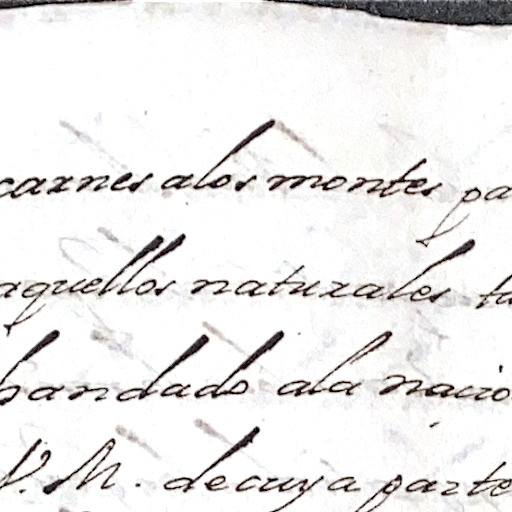 carnes alos montes pa
aquellos naturales tu
handado ala nacio
V. M. de cuya parte